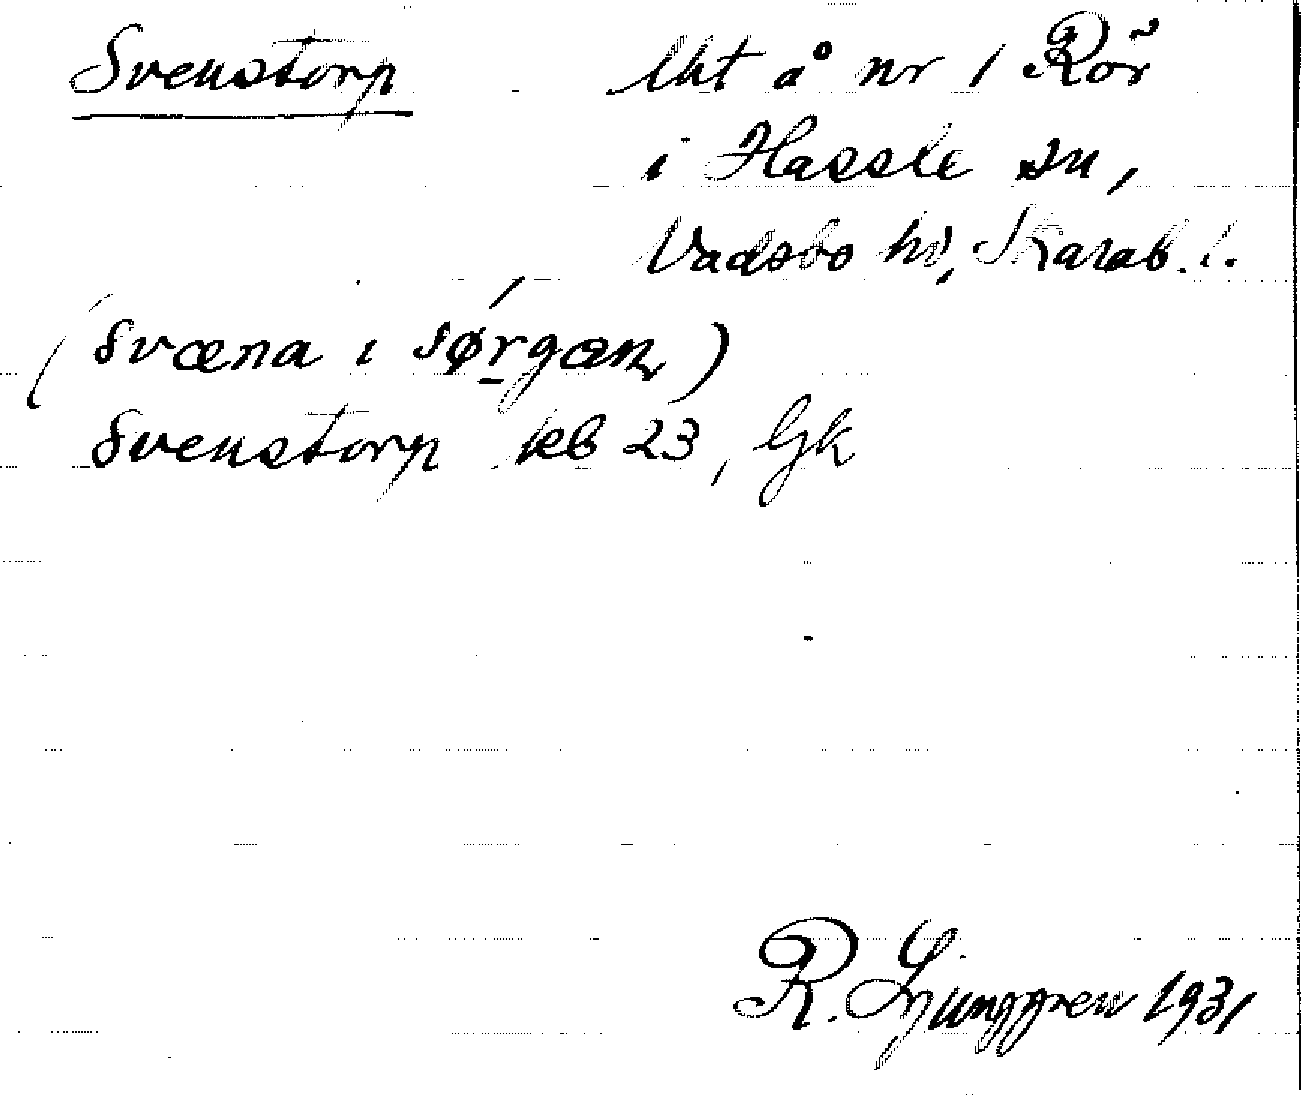 Svenstorp lht å nr 1 Rör
i Hassle sn,
Vadsbo hd, Skarab. l.
(svæna i sørgæn)
Svenstorp kb 23, Gk
R. Ljunggren 1931